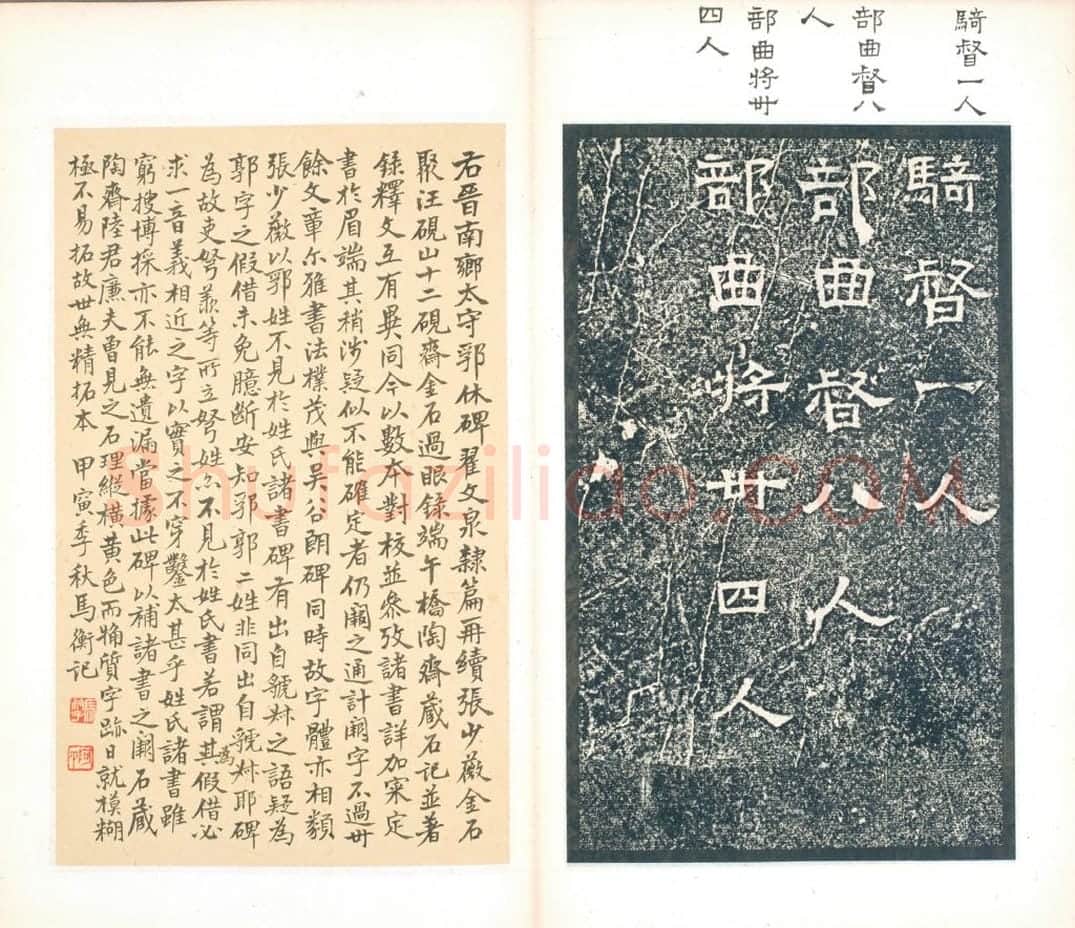 騎督一人
部曲督八
人
部曲將卅
四人
騎督一人
部曲督八人
部曲將卅四人
右晉南鄉太守郛休碑翟文泉隸篇再續張少薇金石
聚汪硯山十二硯齋金石過眼錄端午橋陶齋藏石記並著
錄釋文互有異同今以數本對校並參攷諸書詳加寀定
書於眉端其稍涉疑似不能確定者仍闕之通計闕字不過卅
餘文章尔雅書法樸茂與吴谷朗碑同時故字體亦相類
張少薇以郛姓不見於姓氏諸書碑有出自虢叔之語疑為
郭字之假借未免臆斷安知郛郭二姓非同出自虢叔耶碑
為故吏弩羕等所立弩姓亦不見於姓氏書若謂其為假借必
求一音義相近之字以實之不穿鑿太甚乎姓氏諸書雖
窮搜博採亦不能無遺漏當據此碑以補諸書之闕石藏
陶齋陸君廉夫曾見之石理縱横黃色而觕質字跡日就模糊
極不易拓故世無精拓本 甲寅季秋馬衡記
shufaziliao.com